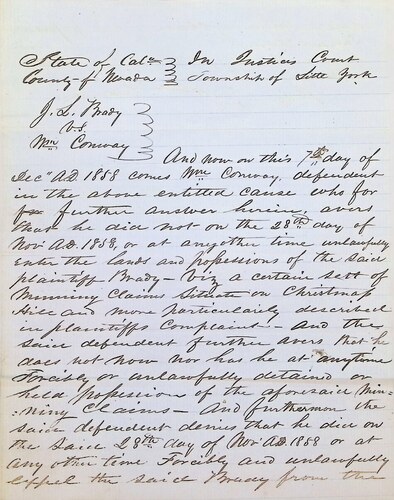 State of Cala In Justices Court
County of Nevada Township of Little York
J. L. Brady
vs
Wm Conway
And now on this 7th day of
Decr A.D. 1858 comes Wm Conway, dependent
in the above entitled cause who for
further answer herein, avers
that he did not on the 28th day of
Novr A.D. 1858, or at anyither time unlawfully
Enter the lands and possessions of the said
plaintiff Brady viz a certain sett of
Minning Claims Situate on Christmass
Hill and more particularly described
in plaintiffs Complaint - And the
said dependent further avers that he
does not now nor has he at anytime
Forcibly or unlawfully detained or
held possession of the aforesaid Min-
-ning Claims - And furthermore the
said dependent denies that he did on
the said 28th day of Novr A.D. 1858 or at
any other time Forcibly and unlawfully
the said Brady from the